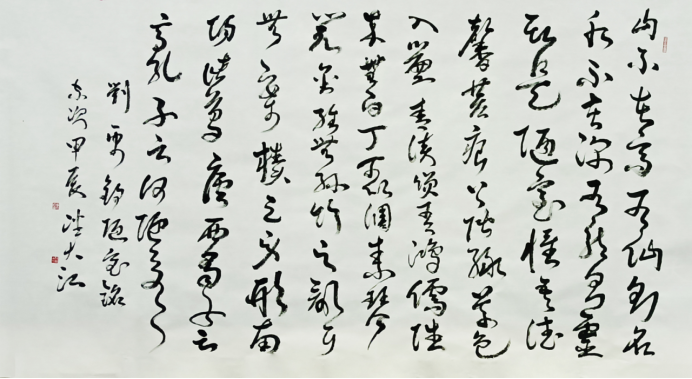 山不在高有仙則名
水不在深有龍則靈
斯是陋室惟吾德
馨苔痕上階綠草色
入簾青談笑有鴻儒往
來無白丁可以調素琴
閱金經無絲竹之亂耳
無案牘之勞形南
陽諸葛廬西蜀子雲
亭孔子云何陋之有
劉禹錫陋室銘
歲次甲辰 大江